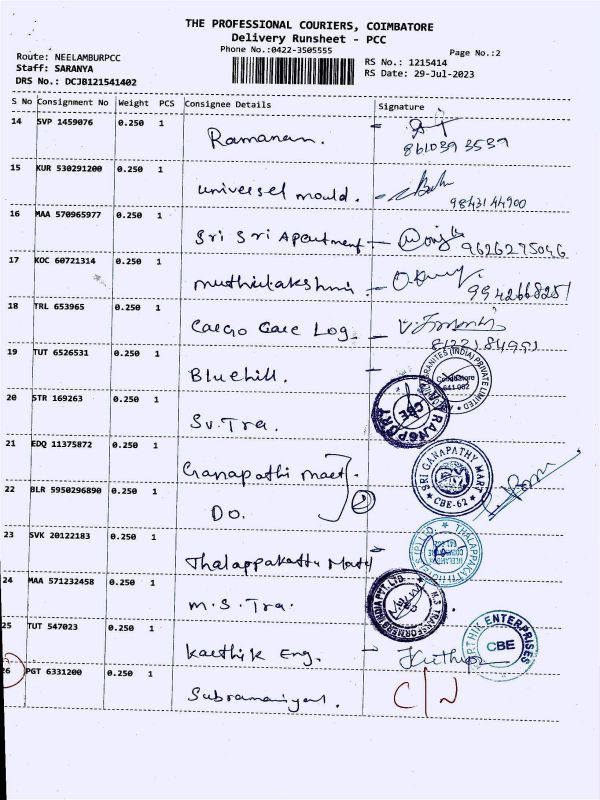 THE PROFESSIONAL COURIERS, COIMBATORE
Delivery Runsheet - PCC
Phone No.:0422-3505555
Page No.:2
Route: NEELAMBURPCC
Staff: SARANYA
DRS No.: DCJB121541402
RS No.: 1215414
RS Date: 29-Jul-2023
S No Consignment No Weight PCS Consignee Details Signature
14 SVP 1459076 0.250 1
Ramanan.
8610393539
15 KUR 530291200 0.250 1
universel mould.
9843144900
16 MAA 570965977 0.250 1
Sri Sri Apartment
9626275046
17 KOC 60721314 0.250 1
muthulakshmi
9942668251
18 TRL 653965 0.250 1
Cargo Care Log
8122184991
19 TUT 6526531 0.250 1
Bluehill.
GRANITES (INDIA) PRIVATE LIMITED
Coimbatore
641 062
20 STR 169263 0.250 1
Sv. Tra.
CBE
21 EDQ 11375872 0.250 1
Ganapathi Mart.
SRI GANAPATHY MART
CBE-62
22 BLR 5950296890 0.250 1
Do.
2
23 SVK 20122183 0.250 1
Thalappakattu
THALAPPAKATTI
24 MAA 571232458 0.250 1
M.S. Tra.
M.S TRANSFORMERS INDIA PVT. LTD.
25 TUT 547023 0.250 1
Karthik Eng.
KARTHIK ENTERPRISES
CBE
26 PGT 6331200 0.250 1
Subramaniyan.
C/N